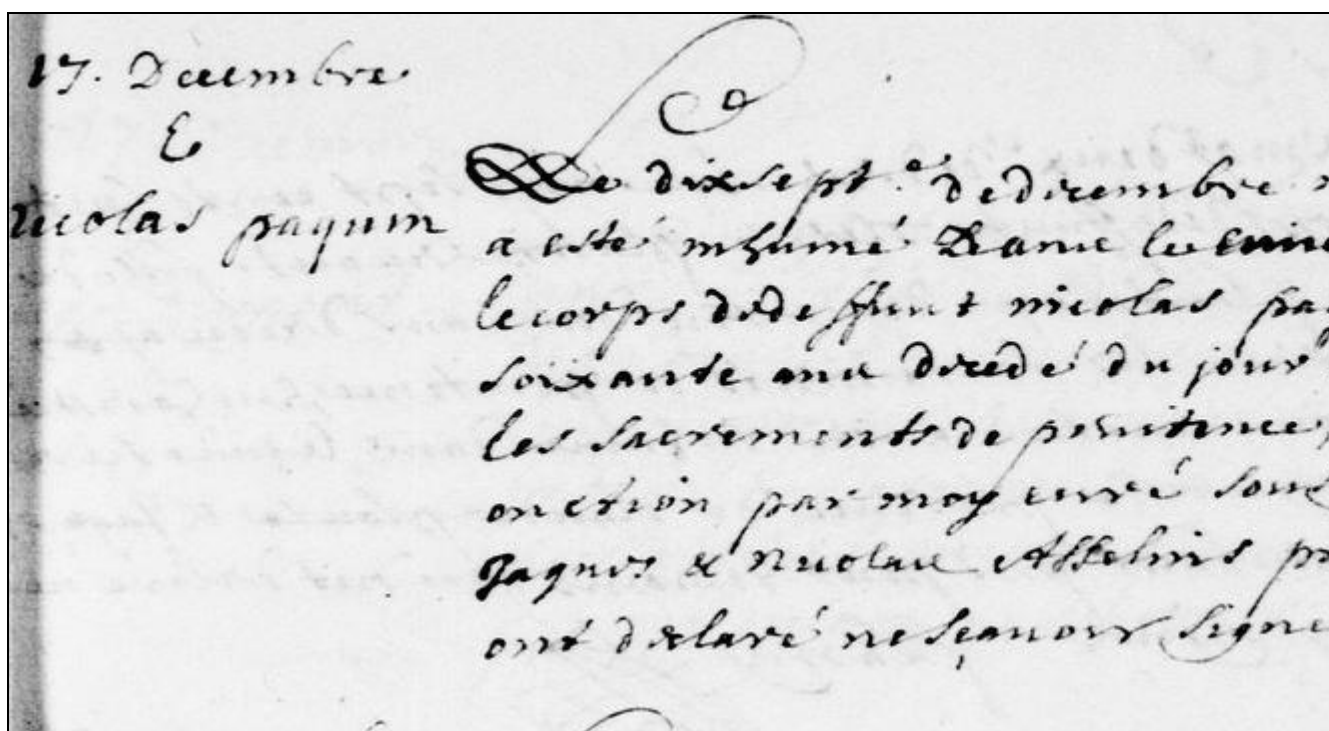 17. Decembre
E
Nicolas paquin
Le dixsept.e de decembre
a esté inhumé dans le
le corps de deffunt nicolas paq
soixante ans decedé du jour
les sacrements de penitence,
onction par moy curé sous
Jaques & Nicolas Asselins pr
ont declaré ne sçauoir signe